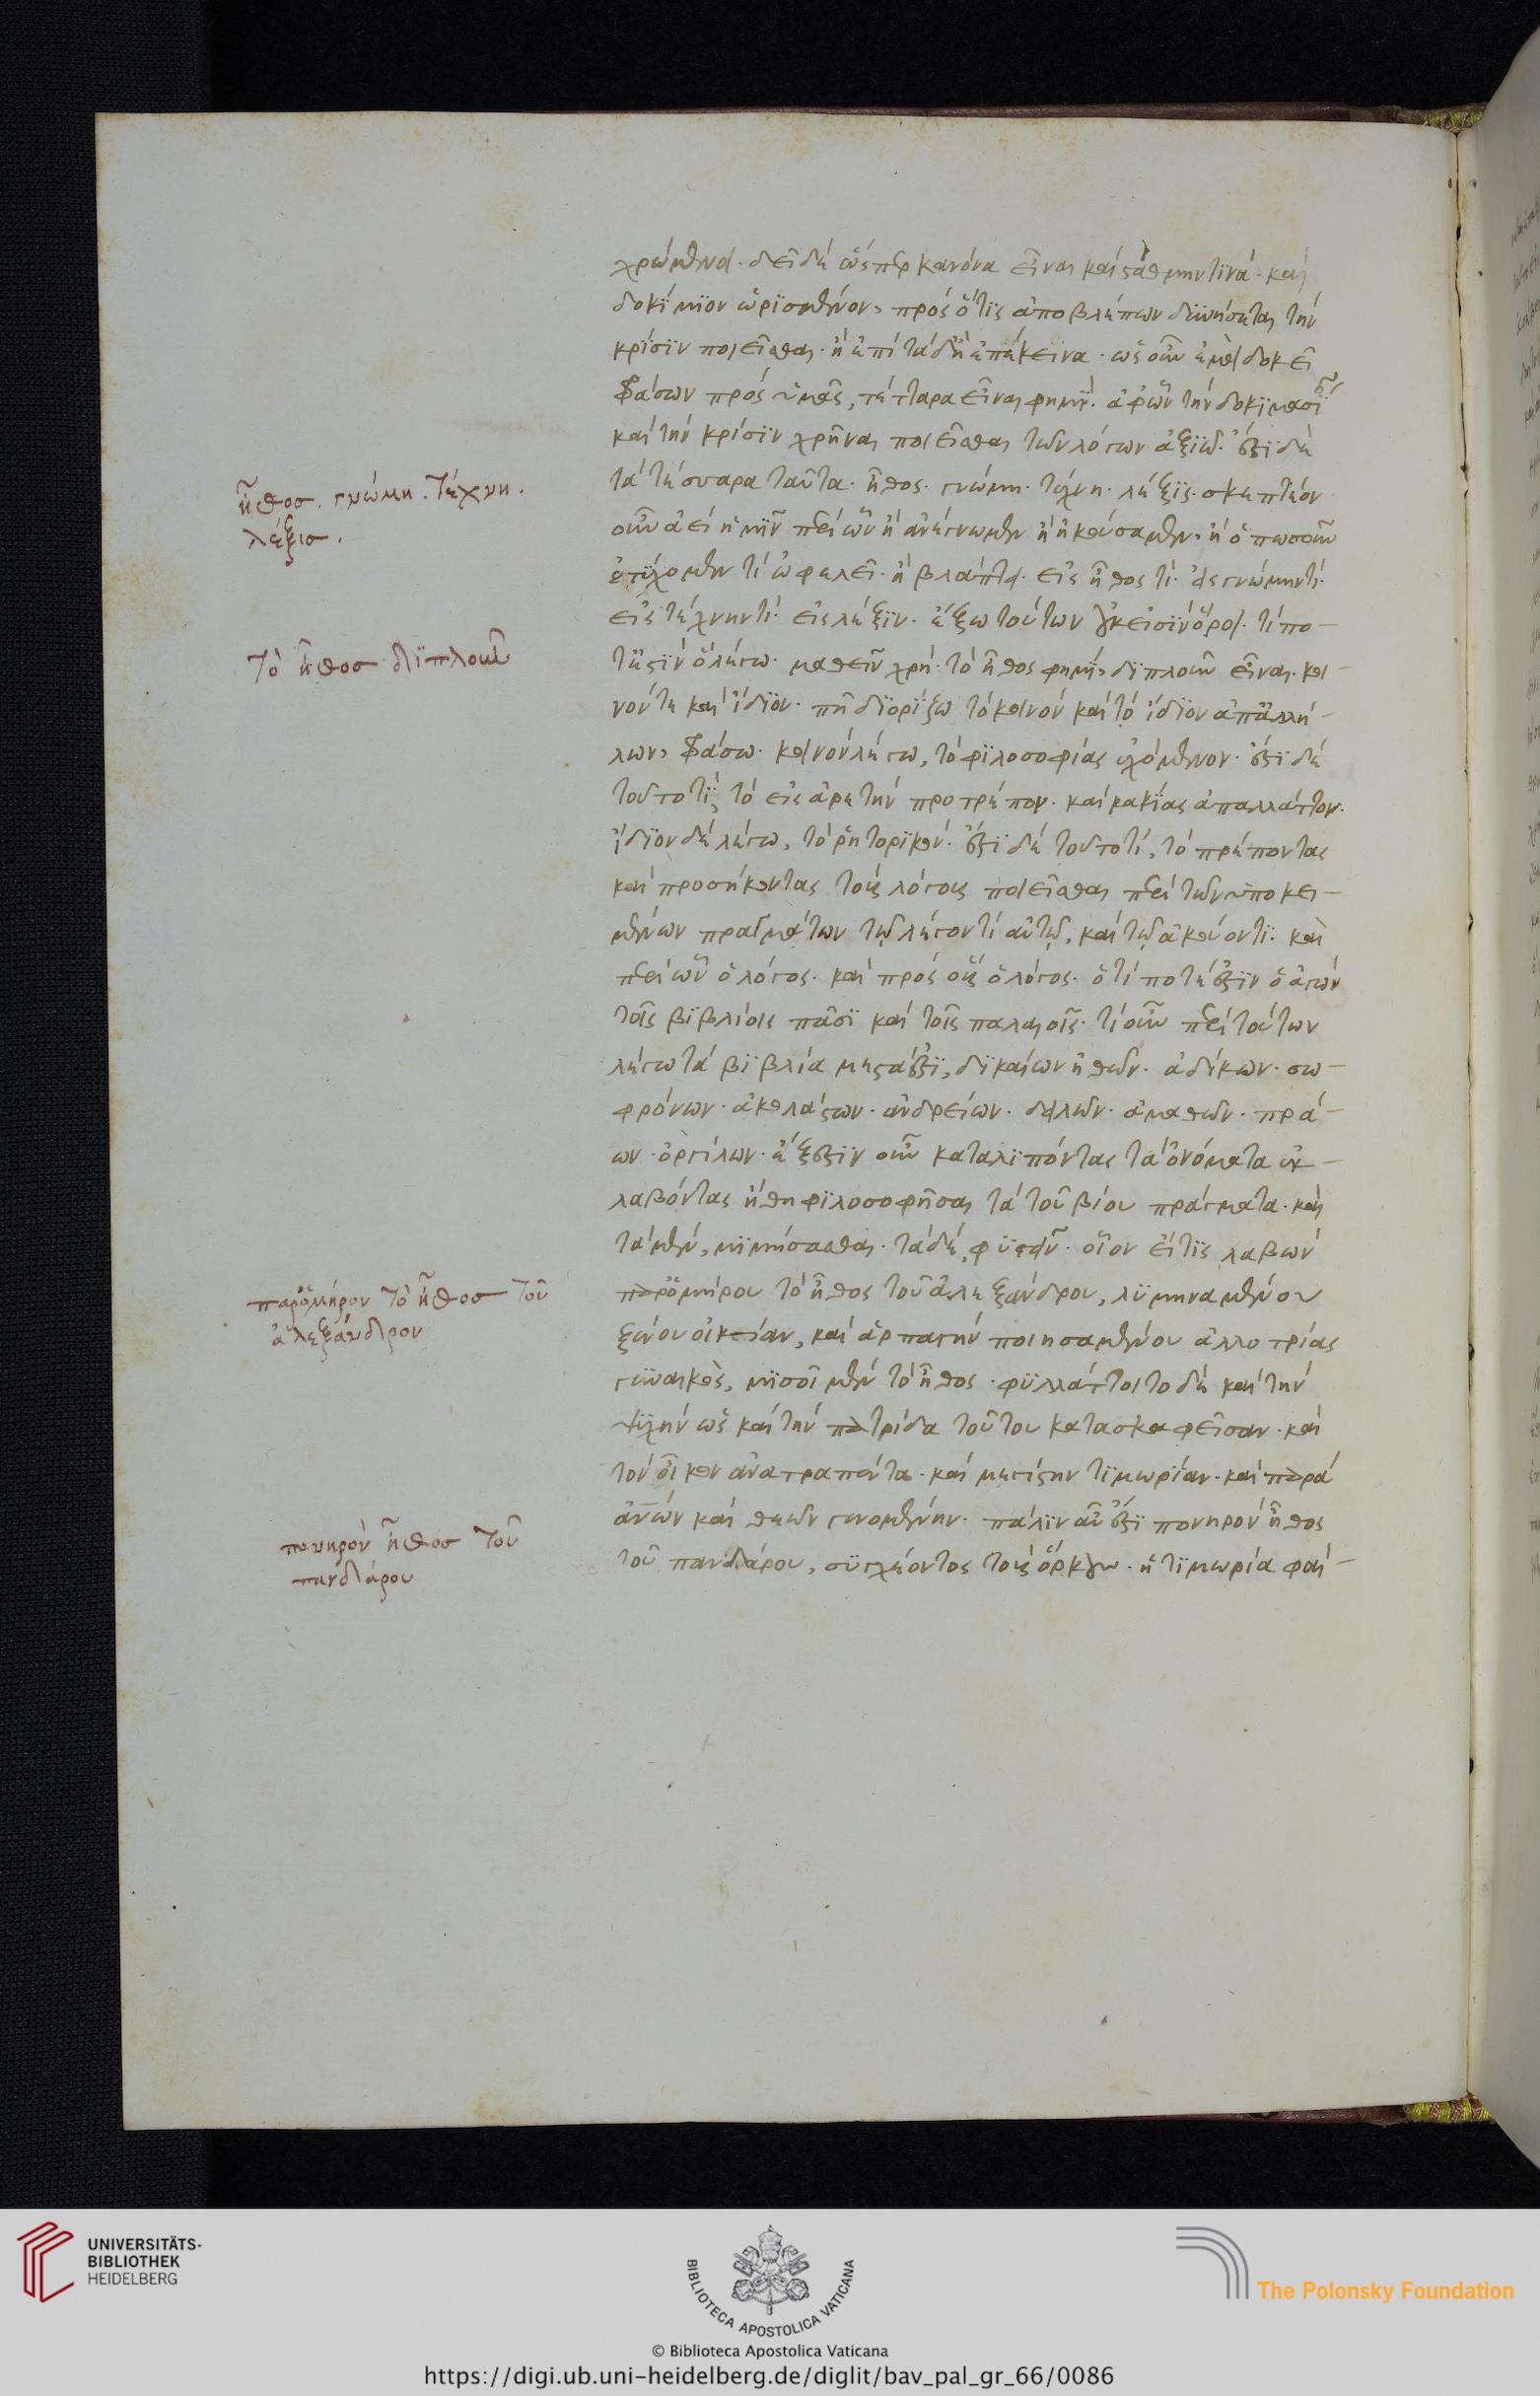 χρώμενοι. δεῖ δὲ ὥσπερ κανόνα εἶναι καὶ στάθμην τινὰ. καὶ
δοκίμιον ὡρισμένον, πρὸς ὅ τις ἀποβλέπων δυνήσεται τὴν
κρίσιν ποιεῖσθαι. ἢ ἐπὶ τάδε ἢ ἐπέκεινα. ὡς οὖν ἐμοὶ δοκεῖ
φράσων πρὸς ὑμᾶς, τέτταρα εἶναι φημὶ. ἀφ' ὧν τὴν δοκιμασίαν
καὶ τὴν κρίσιν χρῆναι ποιεῖσθαι τῶν λόγων ἀξιῶ. ἔστι δὲ
τὰ τέσσαρα ταῦτα. ἦθος. γνώμη. τέχνη. λέξις. σκεπτέον
οὖν ἀεὶ ἡμῖν περὶ ὧν ἢ ἀνέγνωμεν ἢ ἠκούσαμεν, ἢ ὁπωσοῦν
ἐτύχομεν τί ὠφελεῖ. ἢ βλάπτει. εἰς ἦθος τί. εἰς γνώμην τί.
εἰς τέχνην τί. εἰς λέξιν. ἔξω τούτων οὐκ εἰσὶν ὅροι. τί πο-
τ' ἐστὶν ὃ λέγω. μαθεῖν χρὴ. τὸ ἦθος φημὶ, διπλοῦν εἶναι. κοι-
νόν τε καὶ ἴδιον. πῆ διορίζω τὸ κοινὸν καὶ τὸ ἴδιον ἀπ' ἀλλή-
λων, φράσω. κοινὸν λέγω, τὸ φιλοσοφίας ἐχόμενον. ἔστι δὲ
τοῦτο τί, τὸ εἰς ἀρετὴν προτρέπον. καὶ κακίας ἀπαλλάττον.
ἴδιον δὲ λέγω, τὸ ῥητορικόν. ἔστι δὲ τοῦτο τί, τὸ πρέποντας
καὶ προσήκοντας τοὺς λόγους ποιεῖσθαι περὶ τῶν ὑποκει-
μένων πραγμάτων τῷ λέγοντι αὐτῷ, καὶ τῷ ἀκούοντι. καὶ
περὶ ὧν ὁ λόγος. καὶ πρὸς οὓς ὁ λόγος. ὅτι ποτέ ἐστιν ὁ ἀγὼν
τοῖς βιβλίοις πᾶσι καὶ τοῖς παλαιοῖς. τί οὖν περὶ τούτων
λέγω τὰ βιβλία μεστά ἐστι, δικαίων ἠθῶν. ἀδίκων. σω-
φρόνων. ἀκολάστων. ἀνδρείων. δειλῶν. ἀμαθῶν. πρά-
ων. ὀργίλων. ἔξεστιν οὖν καταλιπόντας τὰ ὀνόματα ἐκ-
λαβόντας ἤθη φιλοσοφῆσαι τὰ τοῦ βίου πράγματα. καὶ
τὰ μὲν, μιμήσασθαι. τὰ δὲ, φυγεῖν. οἷον εἴ τις λαβὼν
παρ' ὁμήρου τὸ ἦθος τοῦ ἀλεξάνδρου, λυμηναμένου
ξένου οἰκίαν, καὶ ἁρπαγὴν ποιησαμένου ἀλλοτρίας
γυναικὸς, μισοῖ μὲν τὸ ἦθος. φυλάττοιτο δὲ καὶ τὴν
τύχην ὡς καὶ τὴν πατρίδα τούτου κατασκαφεῖσαν. καὶ
τὸν οἶκον ἀνατραπέντα. καὶ μεγίστην τιμωρίαν. καὶ παρὰ
ἀνθρώπων καὶ θεῶν γενομένην. πάλιν αὖ ἔστι πονηρὸν ἦθος
τοῦ πανδάρου, συγχέοντος τοὺς ὅρκους. ἡ τιμωρία φαί-
ἦθος. γνώμη. τέχνη.
λέξις.
τὸ ἦθος διπλοῦν
παρ' ὁμήρου τὸ ἦθος τοῦ
ἀλεξάνδρου
πονηρὸν ἦθος τοῦ
πανδάρου
UNIVERSITÄTS-
BIBLIOTHEK
HEIDELBERG
BIBLIOTECA APOSTOLICA VATICANA
The Polonsky Foundation
© Biblioteca Apostolica Vaticana
https://digi.ub.uni-heidelberg.de/diglit/bav_pal_gr_66/0086